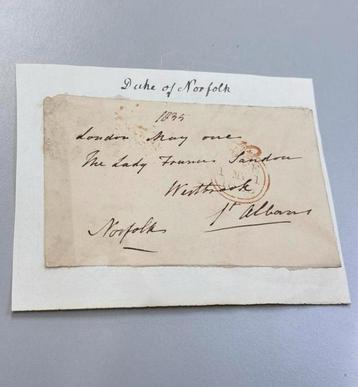 Duke of Norfolk
1835
London May one
The Lady Frances Sandon
Westbrook
St Albans
Norfolk